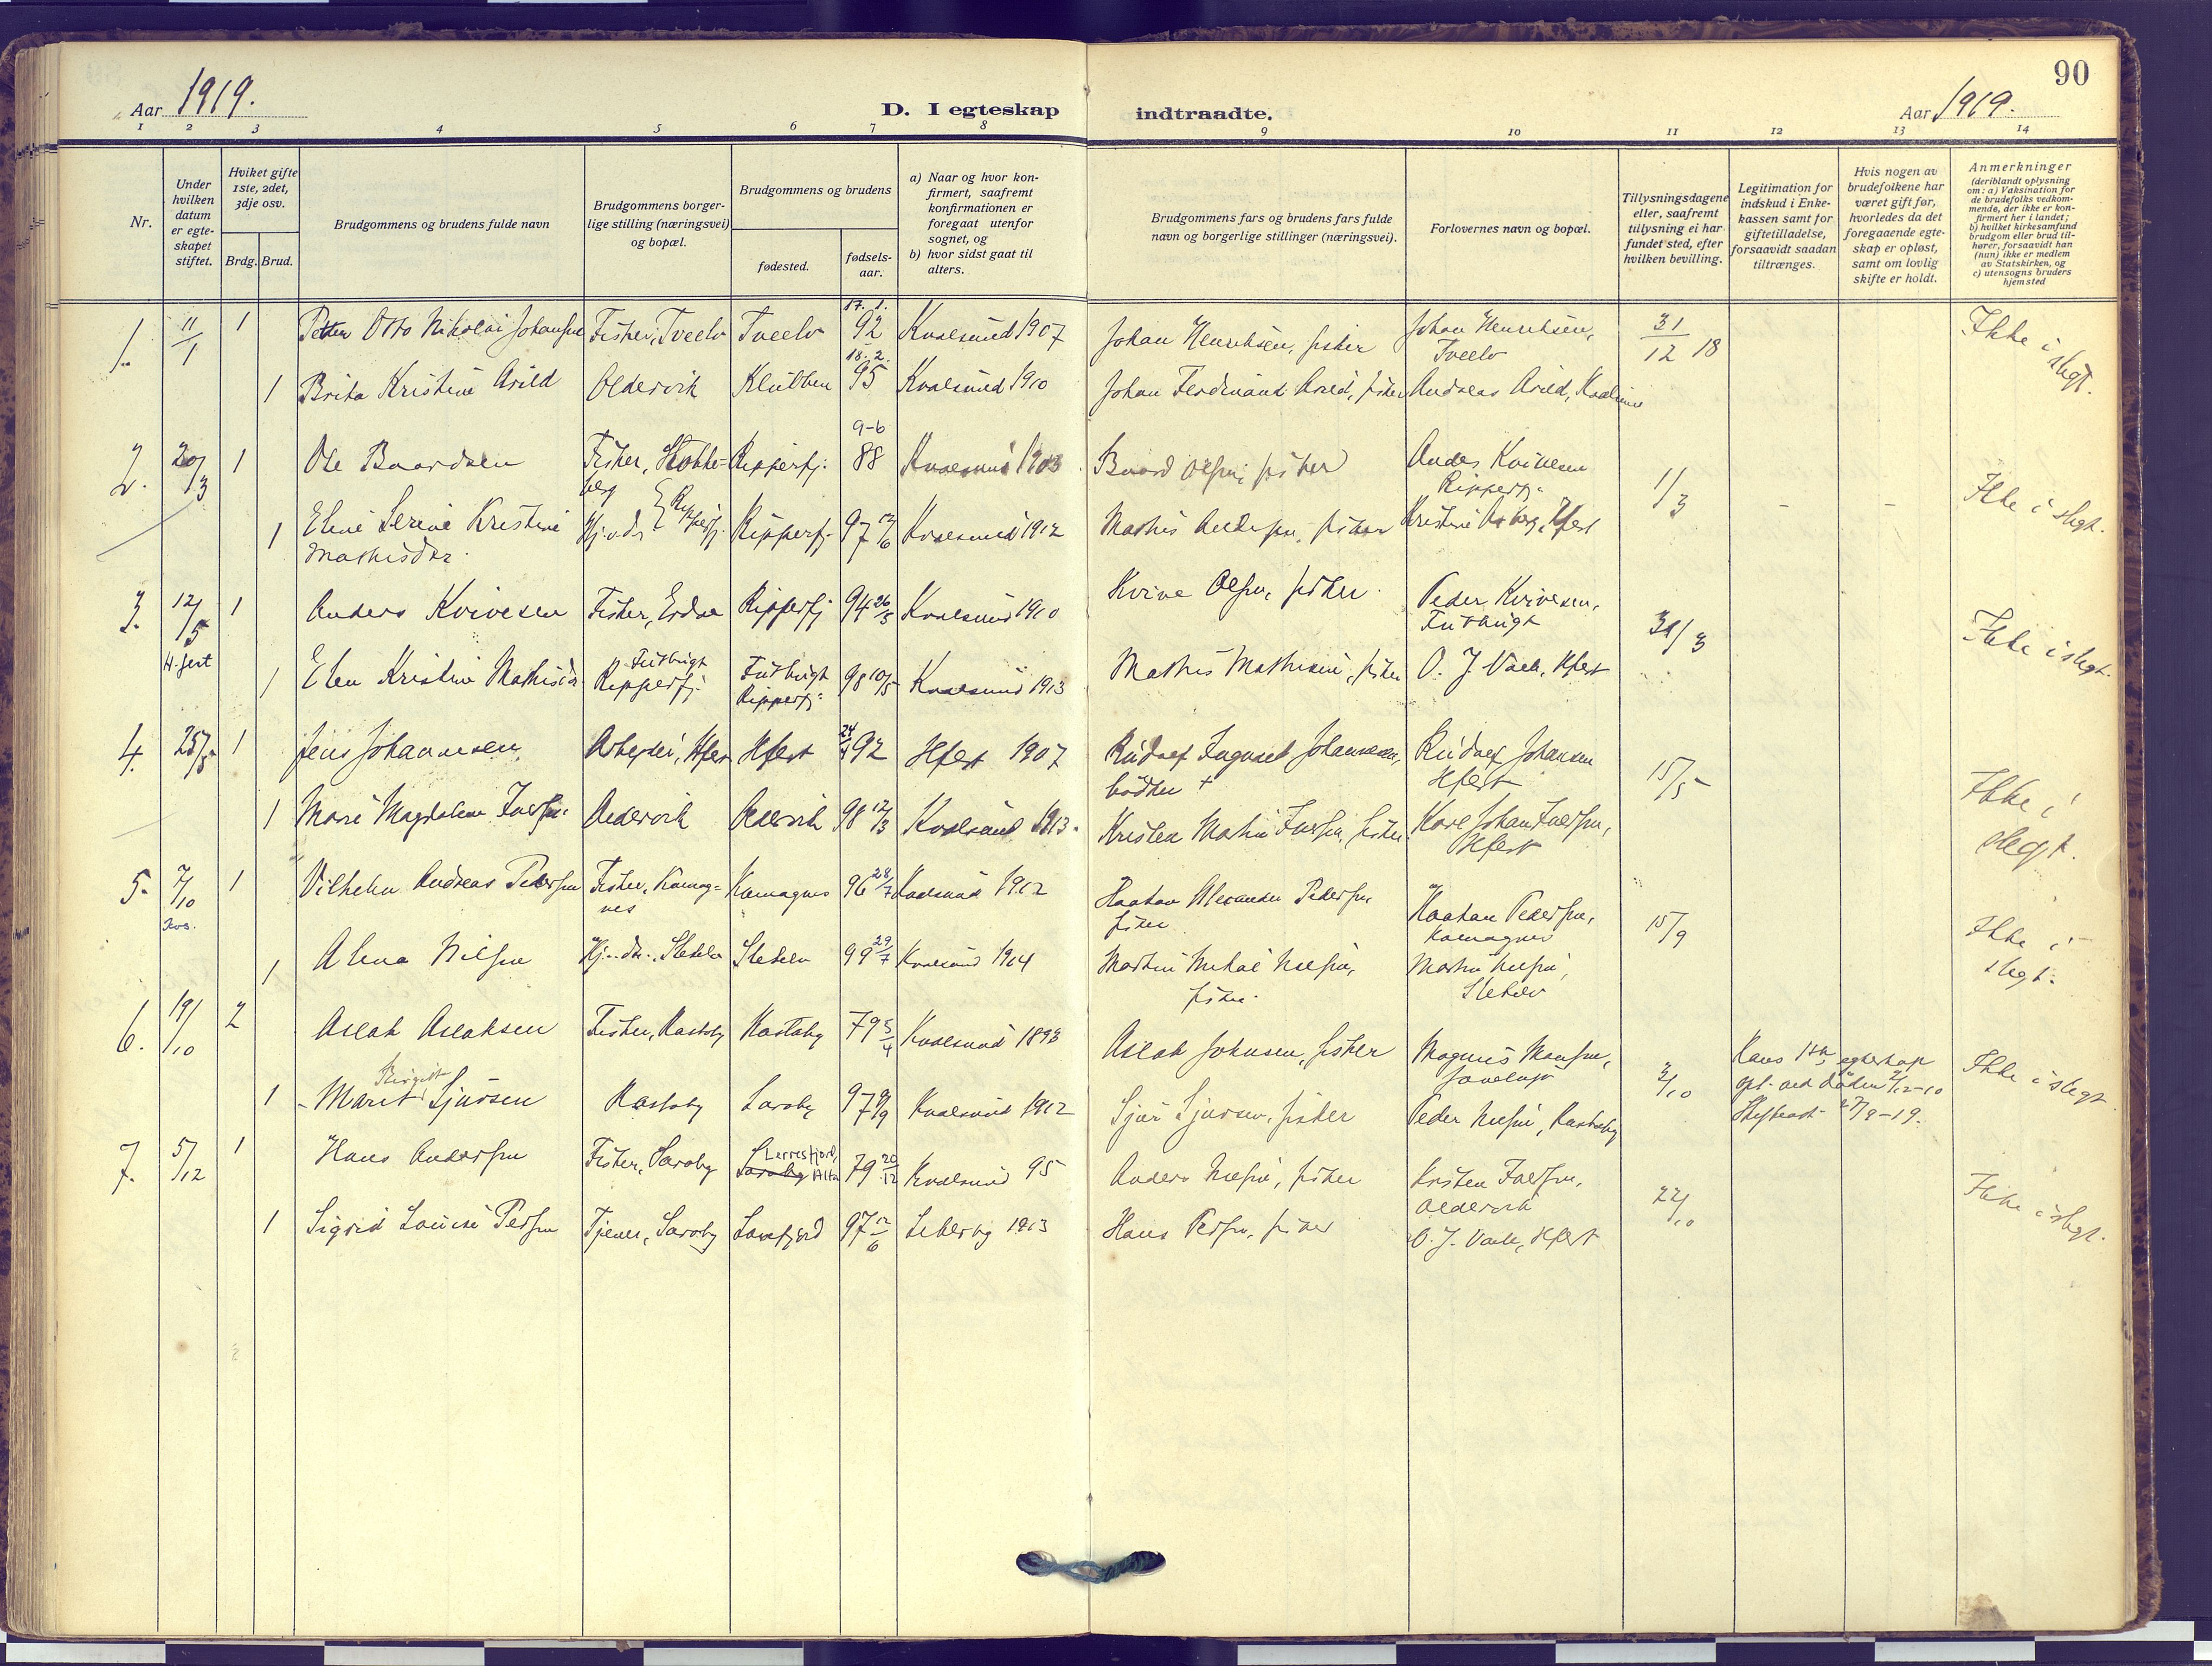 90
Aar 1919.
D. I egteskap indtraadte.
Aar 1919.
1 2 3 4 5 6 7 8 9 10 11 12 13 14
Nr.
Under hvilken datum er egteskapet stiftet.
Hviket gifte 1ste, 2det, 3dje osv.
Brdg. Brud.
Brudgommens og brudens fulde navn
Brudgommens borgerlige stilling (næringsvei) og bopæl.
Brudgommens og brudens
fødested.
fødselsaar.
a) Naar og hvor konfirmert, saafremt konfirmationen er foregaat utenfor sognet, og
b) hvor sidst gaat til alters.
Brudgommens fars og brudens fars fulde navn og borgerlige stillinger (næringsvei).
Forlovernes navn og bopæl.
Tillysningsdagene eller, saafremt tilysning ei har fundet sted, efter hvilken bevilling.
Legitimation for indskud i Enkekassen samt for giftetilladelse, forsaavidt saadan tiltrænges.
Hvis nogen av brudefolkene har været gift før, hvorledes da det foregaaende egteskap er opløst, samt om lovlig skifte er holdt.
Anmerkninger
(deriblandt oplysning om: a) Vaksination for de brudefolks vedkommende, der ikke er konfirmert her i landet; b) hvilket kirkesamfund brudgom eller brud tilhører, forsaavidt han (hun) ikke er medlem av Statskirken, og c) utensogns bruders hjemsted
1. 11/1 1 Peter Otto Nikolai Johansen Fisker, Tveelv Tveelv 17.1. 92 Kvalsund 1907 Johan Henriksen, fisker Johan Henriksen, Tveelv 31/12 18 Ikke i slegt.
1 Brita Kristine Arild Oldervik Klubben 18.2. 95 Kvalsund 1910 Johan Ferdinand Arild, fisker Andreas Arild, Kvalsund
2. 20/3 1 Ole Baardsen Fisker, Stokkeberg Ripperfj. 9-6 88 Kvalsund 1903 Baard Olsen, fisker Anders Kvivesen Ripperfj. 1/3 - - Ikke i slegt.
1 Eline Serine Kristine Mathisdtr. Hj.v.dr. Ripperfj. Ripperfj. 97 12/6 Kvalsund 1912 Mathis Andersen, fisker Hfest
3. 12/5 H.fest 1 Anders Kvivesen Fisker, Ripperfj 94 26/5 Kvalsund 1910 Kvive Olsen, fisker. Peder Kvivesen, Futbugt 31/3 Ikke i slegt.
1 Elen Kristine Mathisdr Futbugt Ripperfj. Futbugt Ripperfj. 98 10/5 Kvalsund 1913 Mathis Mathisen, fisker O. J. Hfest
4. 25/5 1 Jens Johannesen Arbeider, Hfest Hfest 92 Hfest 1907 Rudolf Johannesen, bödker + Rudolf Johansen Hfest 15/5 Ikke i slegt.
1 Marie Magdalene Iversen. Oldervik Oldervik 98 12/3 Kvalsund 1913. Kristen Martin Iversen, fisker Karl Johan Iversen, Hfest
5. 7/10 Kvs. 1 Vilhelm Andreas Pedersen Fisker, Kamagnes Kamagnes 96 28/7 Kvalsund 1912 Haakon Alexander Pedersen fisker Haakon Pedersen, Kamagnes 15/9 Ikke i slegt.
1 Alma Nilsen Hj.. dr., Sletelv Sletelv 99 29/7 Kvalsund 1914 Martin Mikal Nilsen, fisker. Martin Nilsen, Sletelv
6. 19/10 2 Aslak Aslaksen Fisker, Kastoby Kastoby 79 5/4 Kvalsund 1893 Aslak Johnsen, fisker Magnus Monsen, 3/10 Hans 1ste egteskap opl. ved döden 2/12-10 Skifteat. 27/9-19. Ikke i slegt.
1 Birgit Marit Sjursen Kastoby Saroby 97 9/9 Kvalsund 1912 Sjur Sjursen, fisker Peder Nilsen, Kastoby
7. 5/12 1 Hans Andersen Fisker, Saroby Saroby Lerresfjord, Alta 79 20/12 Kvalsund 95 Anders Nilsen, fisker Kristen Iversen, Oldervik 22/10 Ikke i slegt.
1 Sigrid Louise Persen Tjener, Saroby 97 12/6 1913 Hans Persen, fisker O. J. Hfest